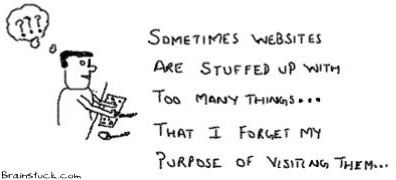 ???
SOMETIMES WEBSITES
ARE STUFFED UP WITH
TOO MANY THINGS...
THAT I FORGET MY
PURPOSE OF VISITING THEM...
Brainstuck.com